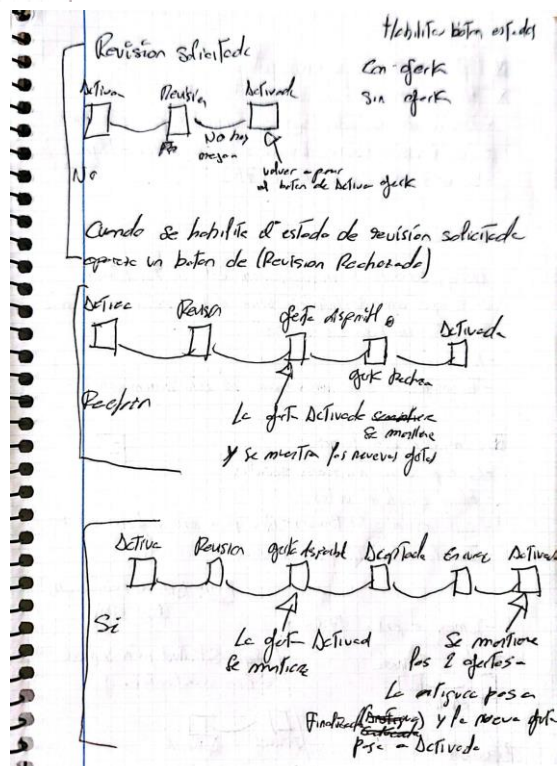 Habilitar botón estados
Revisión solicitada
Con oferta
Sin oferta
Activa Revisión Activada
No hay
volver a poner
el botón de Activa oferta
No
Cuando se habilite el estado de revisión solicitada
aparece un botón de (Revision Rechazada)
Activa Revisión oferta disponible Activada
oferta
La oferta Activada se mantiene
y se muestra las nuevas ofertas
Activa Revision oferta disponible Aceptada Activada
Si
La oferta Activad Se mantiene
se mantiene las 2 ofertas
La antigua pasa
Finalizada y la nueva oferta
pasa a Activada